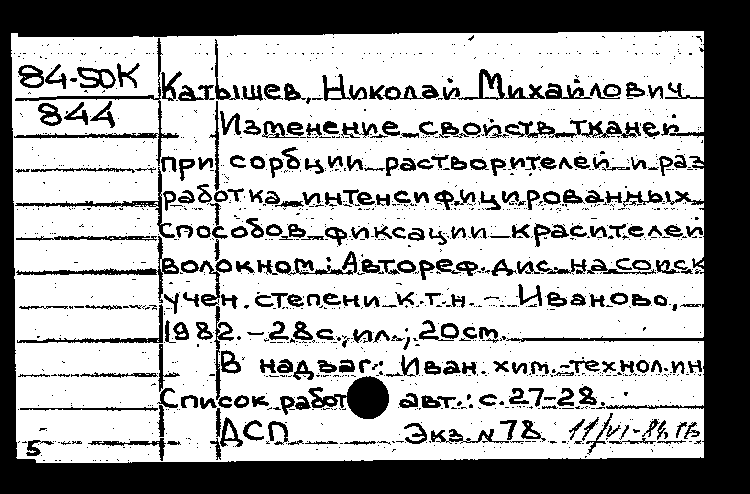 84-50К
844
Катышев, Николай Михайлович.
Изменение свойств тканей
при сорбции растворителей и раз
работка интенсифицированных
способов фиксации красителей
волокном: Автореф. дис. на соиск
учен. степени к.т.н. - Иваново,
1982. - 28с., ил.; 20см.
В надзаг.: Иван. хим.-технол. ин
Список работ авт.: с. 27-28.
ДСП Экз. N 78 11/VI-84
5